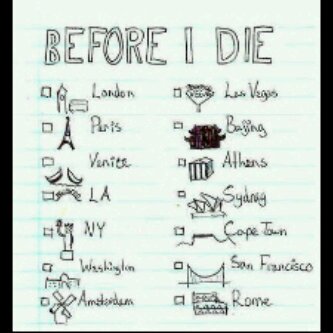 BEFORE I DIE
London
Paris
Venice
LA
NY
Washington
Amsterdam
Las Vegas
Beijing
Athens
Sydney
Cape Town
San Francisco
Rome